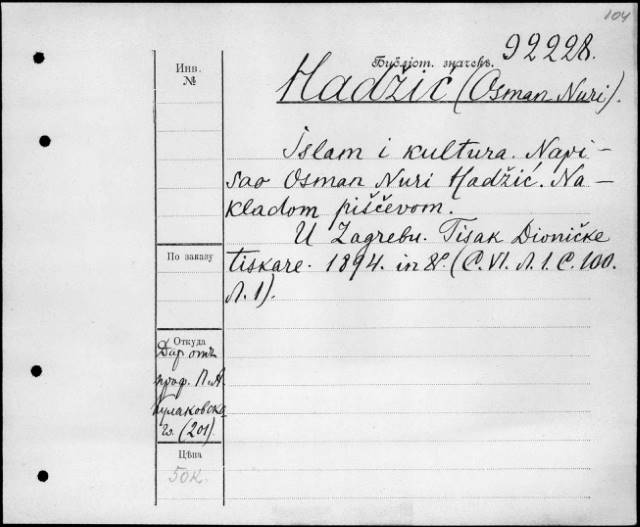 104
92228.
Библіот. значекъ.
Инв.
№
Hadžić (Osman Nuri).
Islam i kultura. Napi-
sao Osman Nuri Hadžić. Na-
kladom piščevom.
U Zagrebu. Tisak Dioničke
По заказу
tiskare. 1894. in 8º. (С. VI. Л. 1. С. 100.
Л. 1).
Откуда
Даръ отъ
проф. П. А.
Кулаковска
го. (201)
Цѣна
50 к.